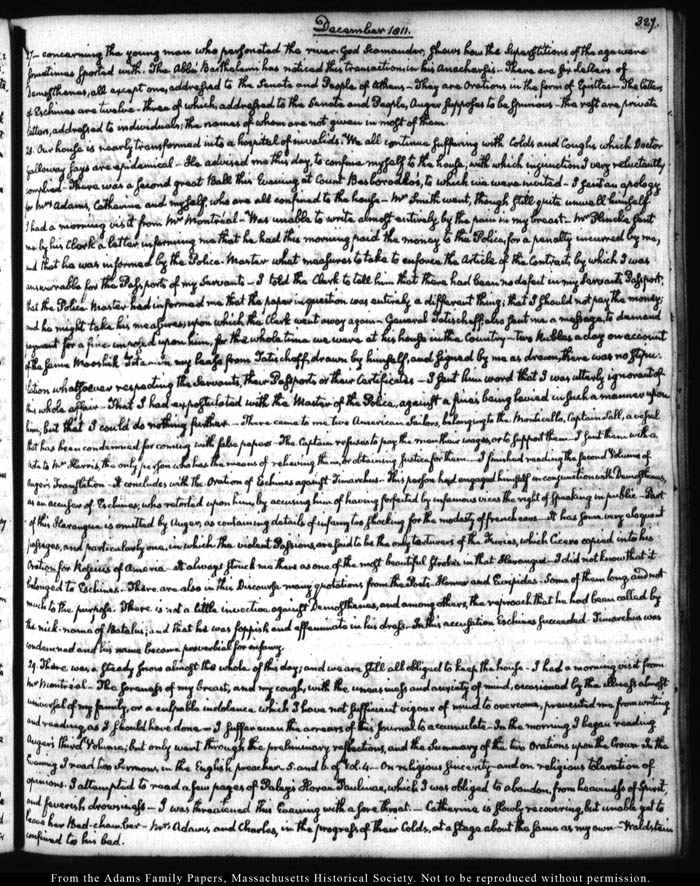 December 1811.
327.
27— concerning the young man who personated the river God Scamander, shews how the Superstitions of the age were
sometimes sported with. The Abbé Barthelemi has noticed this transaction in his Anacharsis— There are six letters of
Demosthenes, all except one, addressed to the Senate and People of Athens— They are Orations in the form of Epistles— The letters
of Eschines are twelve— three of which, addressed to the Senate and People, Auger supposes to be spurious— The rest are private
letters, addressed to individuals, the names of whom are not given in most of them.
28. Our house is nearly transformed into a hospital of invalids. We all continue suffering with Colds and Coughs which Doctor
Galloway says are epidemical— He advised me this day, to confine myself to the house, with which injunction I very reluctantly
complied— There was a second great Ball this Evening at Count Besborodko's, to which we were invited— I sent an apology
for Mrs Adams, Catherine and myself, who are all confined to the house— Mr Smith went, though still quite unwell himself
I had a morning visit from Mr Montréal— Was unable to write almost entirely by the pain in my breast— Mr Plincke sent
me by his Clerk a letter, informing me that he had this morning paid the money to the Police, for a penalty incurred by me,
and that he was informed by the Police-Master what measures to take to enforce the Article of the Contract, by which I was
answerable for the Passports of my Servants— I told the Clerk to tell him that there had been no defect in my Servants Passport;
that the Police Master had informed me that the paper in question was entirely a different thing; that I should not pay the money;
and he might take his measures; upon which the Clerk went away again— General Tatischeff, also sent me a message, to demand
payment for a fine imposed upon him, for the whole time we were at his house in the Country— two Rubles a day on account
of the same Mooshik In my lease from Tatischoff, drawn by himself, and signed by me as drawn, there was no stipu-
lation whatsoever respecting the Servants, their Passports or their Certificates— I sent him word that I was utterly ignorant of
this whole affair— That I had expostulated with the Master of the Police, against a fine's being levied in such a manner upon
him, but that I could do nothing further.— There came to me two American Sailors, belonging to the Monticello, Captain Hall, a vessel
that has been condemned for coming with false papers— The Captain refuses to pay the men their wages, or to support them— I sent them with a
note to Mr Harris, the only person who has the means of relieving them, or obtaining justice for them— I finished reading the second Volume of
Auger's Translation— It concludes with the Oration of Eschines against Timarchus— This person had engaged himself in conjunction with Demosthenes,
as an accuser of Eschines, who retorted upon him, by accusing him of having forfeited by infamous vices the right of speaking in public— Part
of this Harangue is omitted by Auger, as containing details of infamy too shocking for the modesty of french ears— It has some very eloquent
passages, and particularly one, in which the violent Passions, are said to be the only torturers of the Furies, which Cicero copied into his
Oration for Roscius of Ameria— It always struck me there as one of the most beautiful strokes in that Harangue— I did not know that it
belonged to Eschines— There are also in this Discourse many quotations from the Poets Homer and Euripides— Some of them long, and not
much to the purpose. There is not a little invective against Demosthenes, and among others, the reproach that he had been called by
the nick-name of Batalus; and that he was foppish and effeminate in his dress. In this accusation Eschines succeeded. Timarchus was
condemned and his name became proverbial for infamy.
29. There was a steady snow almost the whole of this day; and we are still all obliged to keep the house— I had a morning visit from
Mr Montréal— The soreness of my breast, and my cough, with the uneasiness and anxiety of mind, occasioned by the illness almost
universal of my family, or a culpable indolence which I have not sufficient vigour of mind to overcome, prevented me from writing
and reading as I should have done— I suffer even the arrears of this Journal to accumulate. In the morning I began reading
Auger's third Volume; but only went through the preliminary reflections, and the Summary of the two Orations upon the Crown. In the
Evening I read two Sermons, in the English preacher— 5. and 6. of Vol. 4— On religious sincerity— and on religious toleration of
opinions. I attempted to read a few pages of Paley's Horæ Paulinæ, which I was obliged to abandon, from heaviness of Spirit,
and feverish drowsiness— I was threatened this Evening with a sore throat— Catherine is slowly recovering, but unable yet to
leave her Bed-chamber— Mrs Adams, and Charles, in the progress of their Colds, at a stage about the same as my own— Waldstein
confined to his bed.
From the Adams Family Papers, Massachusetts Historical Society. Not to be reproduced without permission.